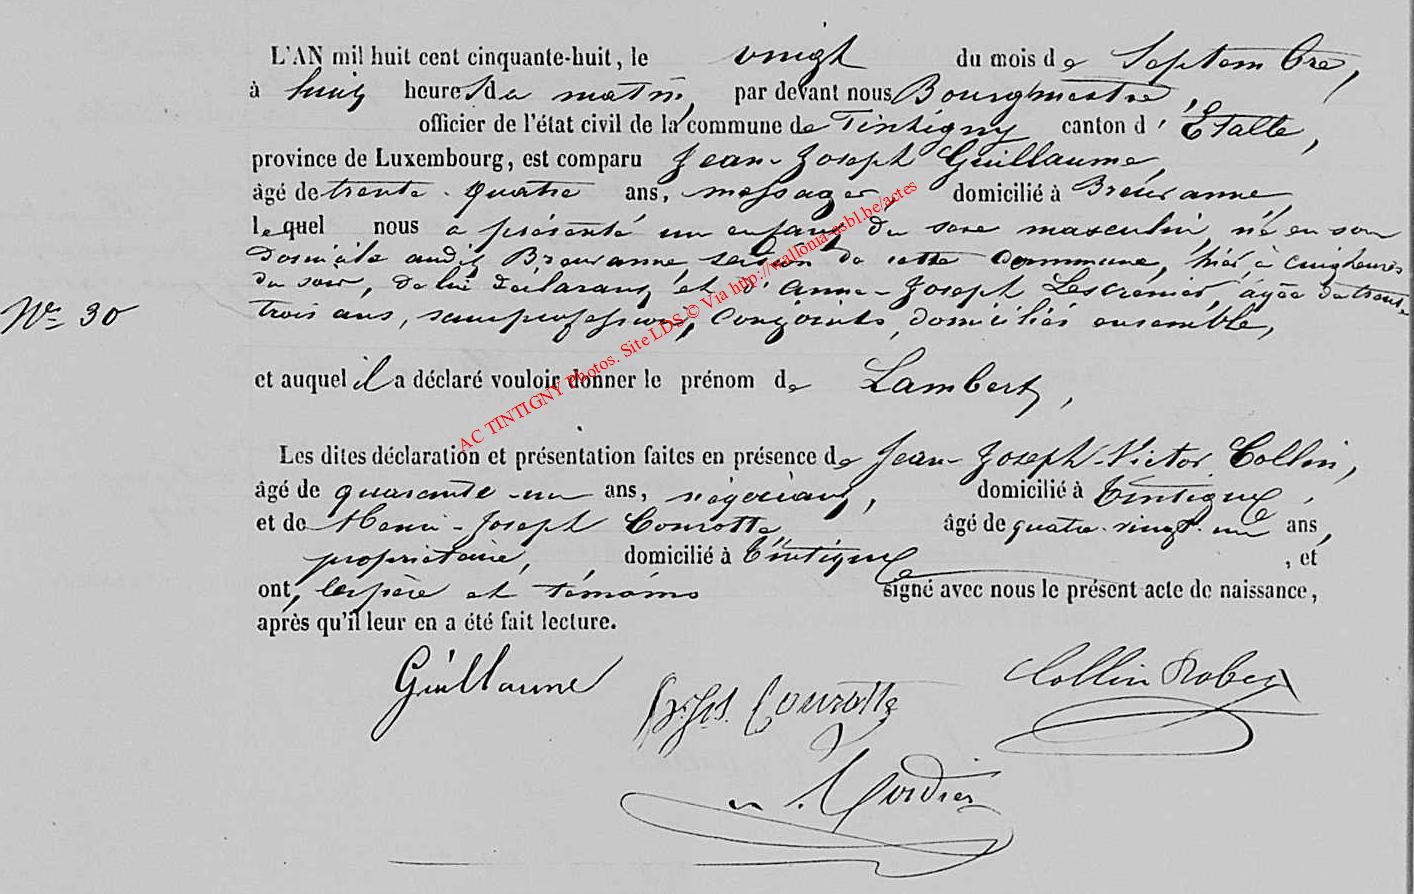 L'AN mil huit cent cinquante-huit, le vingt du mois de Septembre,
à huit heures du matin, par devant nous Bourgmestre,
officier de l'état civil de la commune de Tintigny canton d'Etalle,
province de Luxembourg, est comparu Jean-Joseph Guillaume,
âgé de trente-quatre ans, messager, domicilié à Breuvanne,
lequel nous a présenté un enfant du sexe masculin, né en son
domicile audit Breuvanne, section de cette commune, hier, à cinq heures
du soir, de lui déclarant et d'Anne-Joseph Lescrenier, âgée de trente-
N° 30 trois ans, sans profession, conjoints, domiciliés ensemble,
et auquel il a déclaré vouloir donner le prénom de Lambert,
Les dites déclaration et présentation faites en présence de Jean-Joseph-Victor Collin,
âgé de quarante-un ans, négociant, domicilié à Tintigny,
et de Henri-Joseph Courotte, âgé de quatre-vingt-un ans,
propriétaire, domicilié à Tintigny, et
ont, les père et témoins signé avec nous le présent acte de naissance,
après qu'il leur en a été fait lecture.
Guillaume
Courotte
Collin
AC TINTIGNY Photos. Site LDS © Via http://wallonia-asbl.be/actes